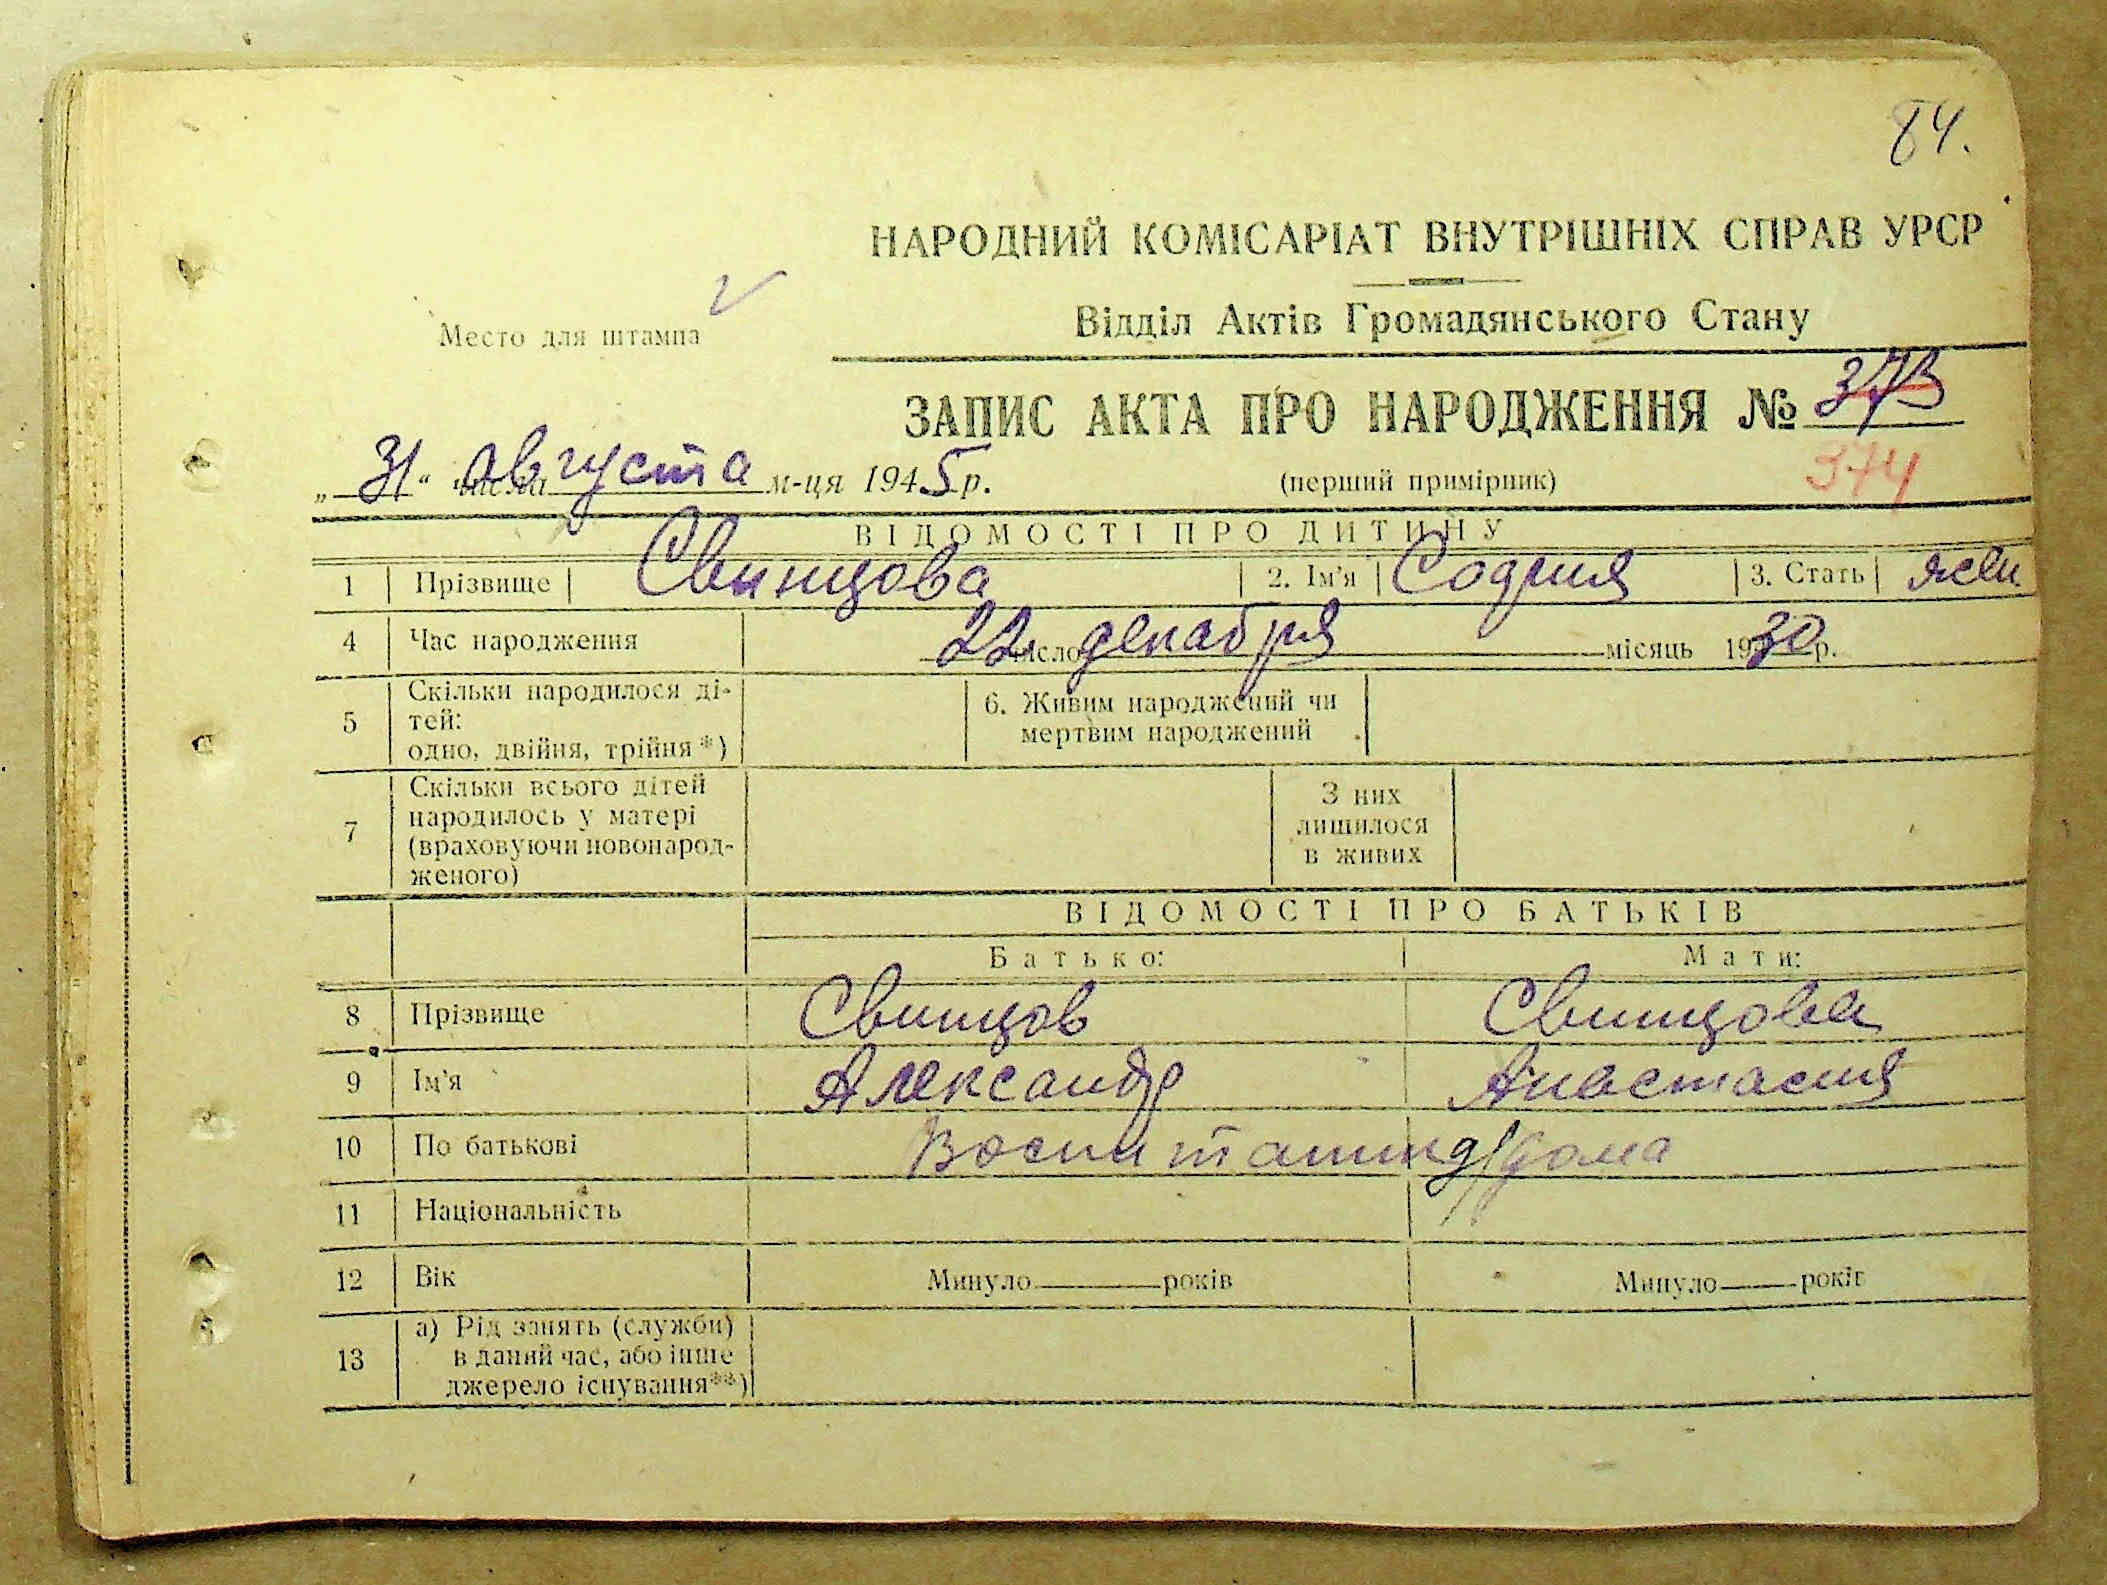 84.
НАРОДНИЙ КОМІСАРІАТ ВНУТРІШНІХ СПРАВ УРСР
Место для штампа
Відділ Актів Громадянського Стану
ЗАПИС АКТА ПРО НАРОДЖЕННЯ № 373
„31“ числа августа м-ця 1945 р.
(перший примірник)
374
ВІДОМОСТІ ПРО ДИТИНУ
1 Прізвище Свинцова 2. Ім'я София 3. Стать жен
4 Час народження 22 число декабря місяць 1930 р.
5 Скільки народилося ді-
тей:
одно, двійня, трійня*)
6. Живим народжений чи
мертвим народжений
7 Скільки всього дітей
народилось у матері
(враховуючи новонарод-
женого)
З них
лишилося
в живих
ВІДОМОСТІ ПРО БАТЬКІВ
Батько: Мати:
8 Прізвище Свинцов Свинцова
9 Ім'я Александр Анастасия
10 По батькові Воспитанник д/дома
11 Національність
12 Вік Минуло років Минуло років
13 а) Рід занять (служби)
в даний час, або інше
джерело існування**)